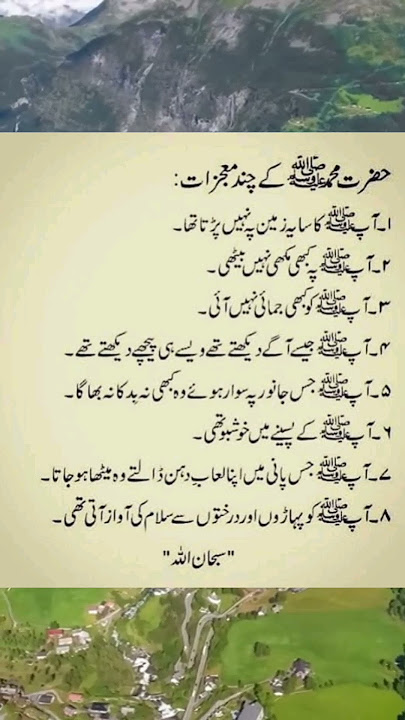 حضرت محمد ﷺ کے چند معجزات :
۱۔ آپ ﷺ کا سایہ زمین پہ نہیں پڑتا تھا۔
۲۔ آپ ﷺ پہ کبھی مکھی نہیں بیٹھی۔
۳۔ آپ ﷺ کو کبھی جمائی نہیں آئی۔
۴۔ آپ ﷺ جیسے آگے دیکھتے تھے ویسے ہی پیچھے دیکھتے تھے۔
۵۔ آپ ﷺ جس جانور پہ سوار ہوئے وہ کبھی نہ بدکا نہ بھاگا۔
۶۔ آپ ﷺ کے پسینے میں خوشبو تھی۔
۷۔ آپ ﷺ جس پانی میں اپنا لعاب دہن ڈالتے وہ میٹھا ہو جاتا۔
۸۔ آپ ﷺ کو پہاڑوں اور درختوں سے سلام کی آواز آتی تھی۔
"سبحان اللہ"